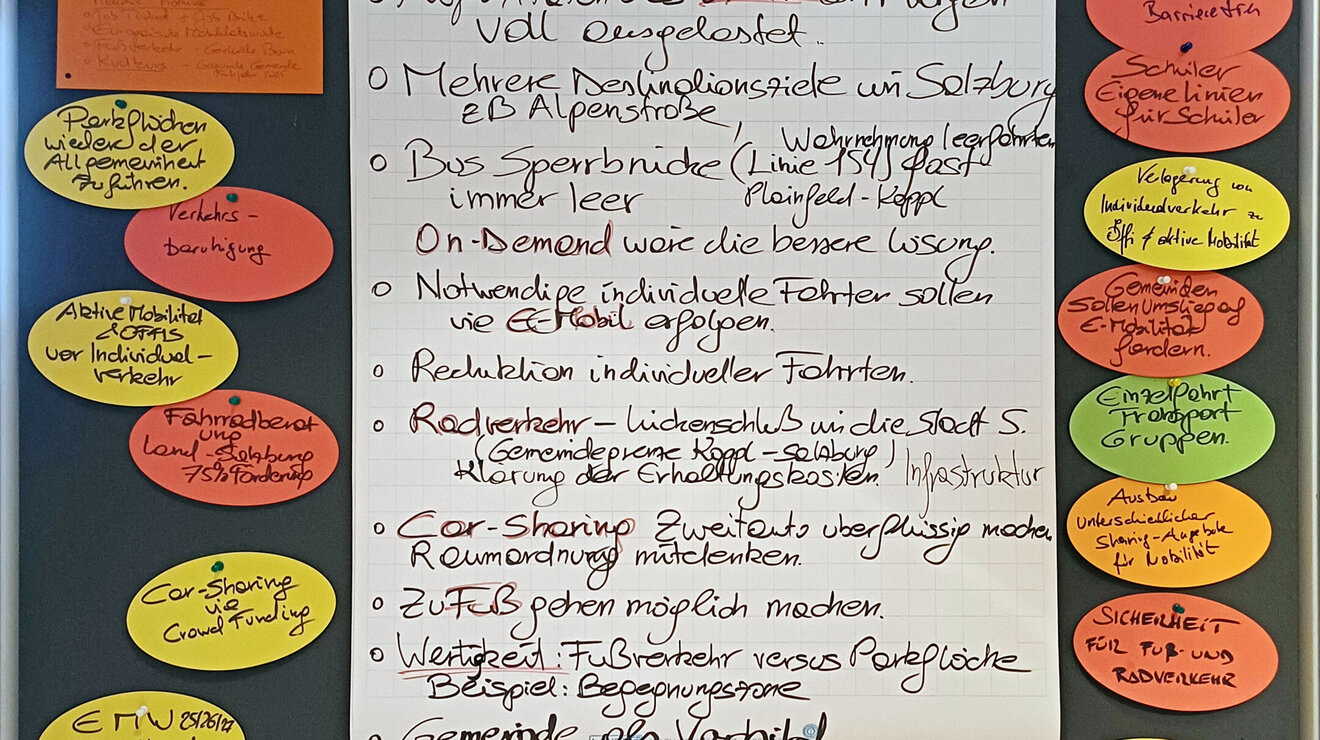 Job Ticket + Job Bike
Fußverkehr - Gerlinde Born
Parkflächen
wieder der
Allgemeinheit
zuführen.
Verkehrs-
beruhigung
Aktive Mobilität
& ÖFFIS
vor Individual-
verkehr
Fahrradberat
ung
Land-Salzburg
75% Förderung
Car-Sharing
via
Crowd Funding
EMW 25/26/27
voll ausgelastet.
o Mehrere Destinationsziele in Salzburg
zB Alpenstraße
Wahrnehmung leerfahrten
o Bus Sperrbrücke (Linie 154) fast
immer leer Plainfeld-Koppl
On-Demand wäre die bessere Lösung.
o Notwendige individuelle Fahrten sollen
via E-Mobil erfolgen.
o Reduktion individueller Fahrten.
o Radverkehr – Lückenschluß in die Stadt S.
(Gemeindegrenze Koppl-Salzburg)
Klärung der Erhaltungskosten. Infrastruktur
o Car-Sharing Zweitauto überflüssig machen
Raumordnung mitdenken.
o Zu Fuß gehen möglich machen.
o Wertigkeit: Fußverkehr versus Parkfläche
Beispiel: Begegnungszone
o Gemeinde als Vorbild
Barrierefrei
Schüler
Eigene Linien
für Schüler
Verlagerung von
Individualverkehr zu
Öffi & aktive Mobilität
Gemeinden
sollen Umstieg auf
E-Mobilität
fördern.
Einzelfahrt
Transport
Gruppen.
Ausbau
unterschiedlicher
Sharing-Angebote
für Mobilität
SICHERHEIT
FÜR FUß- UND
RADVERKEHR